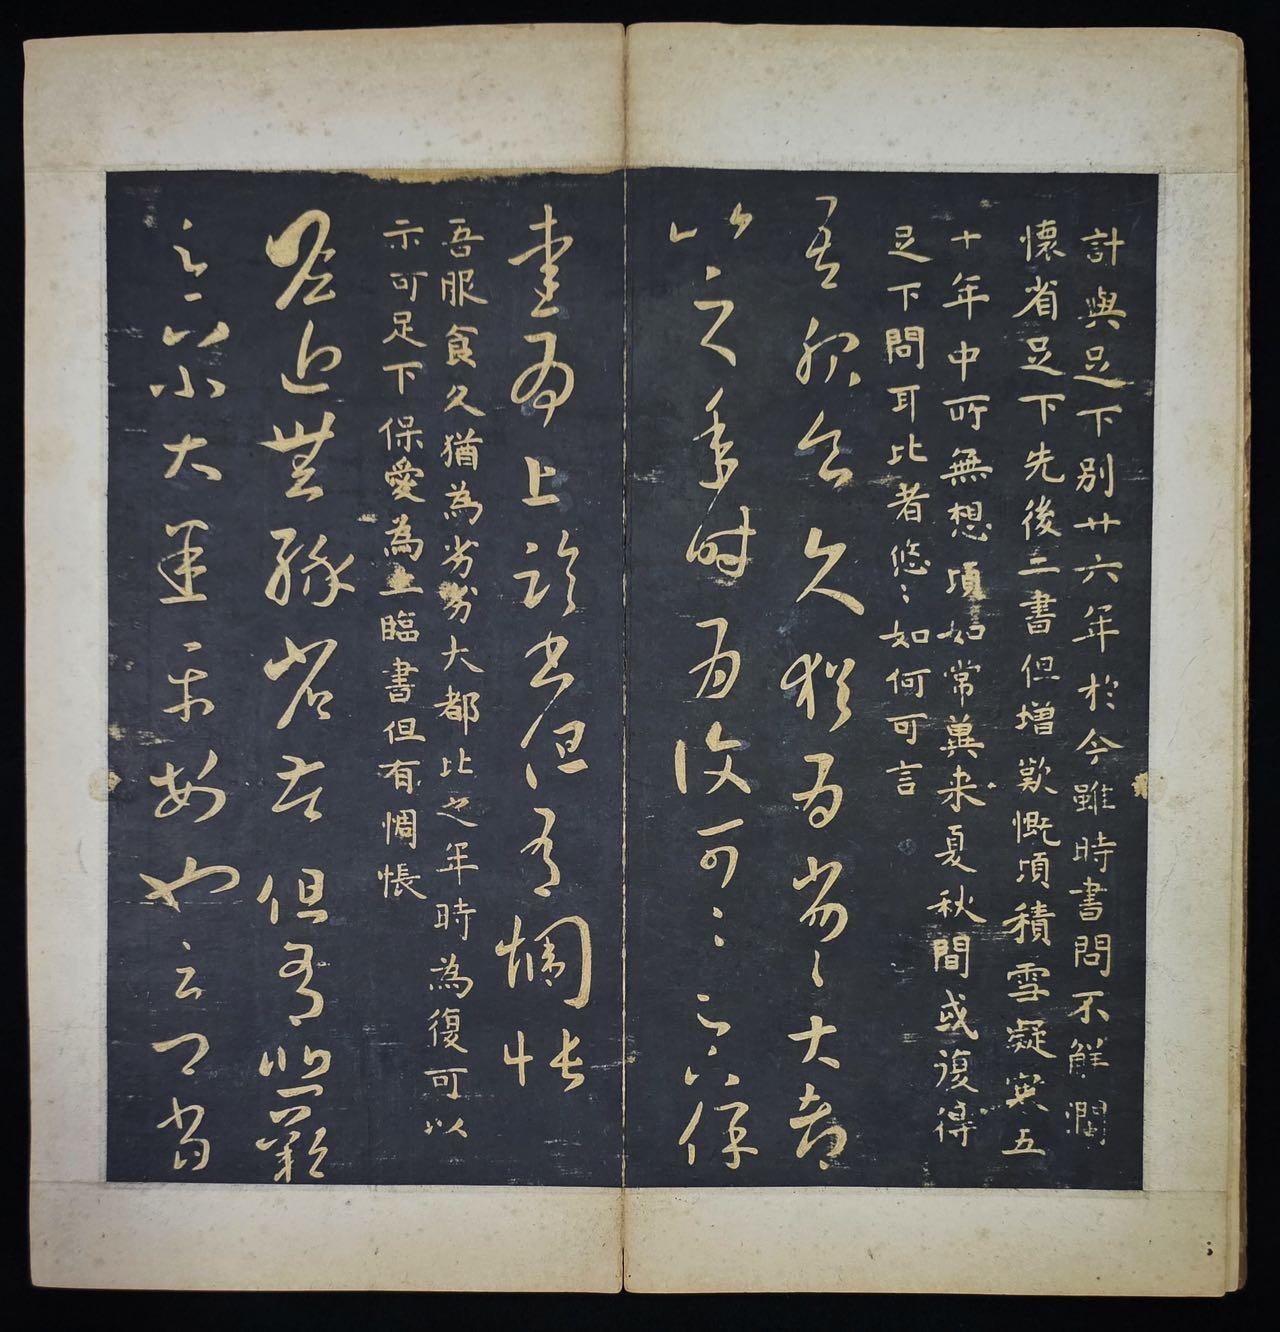 計與足下別廿六年於今雖時書問不解闊
懷省足下先後二書但增歎慨頃積雪凝寒五
十年中所無想頃如常冀来夏秋間或復得
足下問耳比者悠〻如何可言
吾服食久猶為劣〻大都
比之年時為復可〻足下保
愛為上臨書但有惆悵
吾服食久猶為劣劣大都比之年時為復可以
示可足下保愛為上臨書但有惆悵
瞻近無緣省告但有悲歎
足下小大悉平安也云卿當